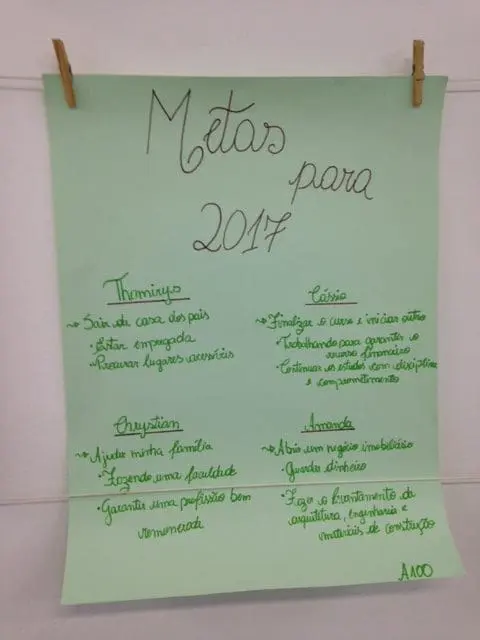 Metas
para
2017
Thamirys
Sair da casa dos pais
• Estar empregada
• Procurar lugares acessíveis
Cássio
Finalizar o curso e iniciar outro
• Trabalhando para garantir o
recurso financeiro
• Continuar os estudos com disciplina
e comprometimento
Chrystian
Ajudar minha família
• Fazendo uma faculdade
• Garantir uma profissão bem
remunerada
Amanda
Abrir um negócio imobiliário
• Guardar dinheiro
• Fazer o levantamento de
arquitetura, engenharia e
materiais de construção
A100